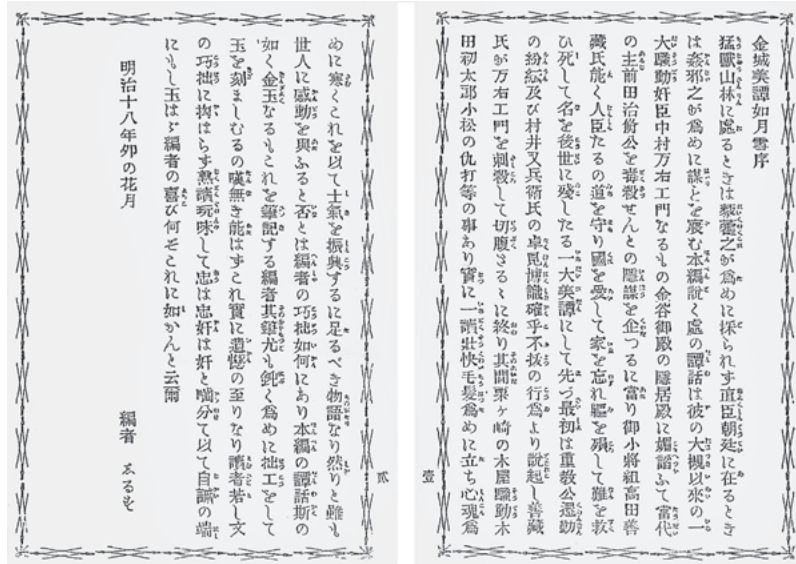 金城美譚如月雪序
猛獸山林に處るときは藜藿之が爲めに採られす直臣朝廷に在るとき
は姦邪之が爲めに謀とを寢む本編說く處の譚話は彼の大槻以來の一
大騷動奸臣中村万右エ門なるもの金谷御殿の隱居殿に媚諮ふて當代
の主前田治脩公を毒殺せんとの隱謀を企つるに當り御小將組高田善
藏氏能く人臣たるの道を守り國を愛して家を忘れ軀を殞して難を救
ひ死して名を後世に殘したる一大美譚にして先づ最初は重敎公還動
の紛紜及び村井又兵衛氏の卓見博識確乎不拔の行爲より說起し善藏
氏が万右エ門を刺殺して切腹さるゝに終り其間粟ヶ崎の木屋騷動木
田初太郞小松の仇打等の事あり實に一讀壯快毛髮爲めに立ち心魂爲
壹
めに寒くこれを以て士氣を振興するに足るべき物語なり然りと雖も
世人に感動を與ふると否とは編者の巧拙如何にあり本編の譚話斯の
如く金玉なるもこれを筆記する編者其筆尤も鈍く爲めに拙工をして
玉を刻ましむるの嘆無き能はすこれ實に遺憾の至りなり讀者若し文
の巧拙に拘はらす熟讀玩味して忠は忠奸は奸と嚙分て以て自誡の端
にもし玉はゞ編者の喜び何そこれに如かんと云爾
明治十八年卯の花月
編者 ゑるを
貳